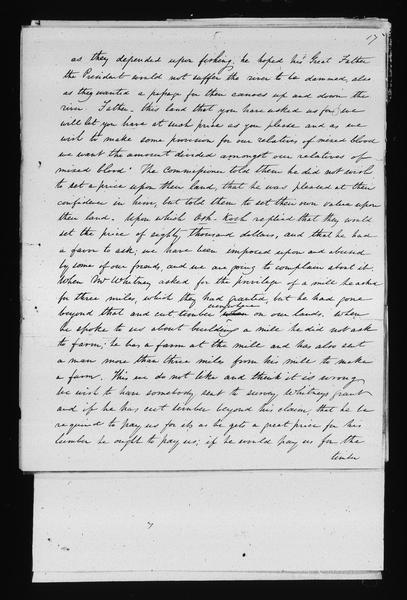 17
as they depended upon fishing, he hoped his Great Father
the President would not suffer the river to be dammed, also
as they wanted a passage for their canoes up and down the
river. Father - this land that you have asked us for, we
will let you have at such price as you please and as we
wish to make some provision for our relatives of mixed blood
we want the amount divided amongst our relatives of
mixed blood. The Commissioner told them he did not wish
to set a price upon their land, that he was pleased at their
confidence in him, but told them to set their own value upon
their land. Upon which Osh. Kosh replied that they would
set the price of eighty thousand dollars, and that he had
a favor to ask; we have been imposed upon and abused
by some of our friends, and we are going to complain about it.
When Mr Whitney asked for the privilege of a mill he asked
for three miles, which they had granted, but he had gone
beyond that and cut timber on our lands. When
he spoke to us about building a mill he did not ask
to farm; he has a farm at the mill and has also set
a man more than three miles from his mill to make
a farm. This we do not like and think it is wrong
we wish to have somebody sent to survey Whitneys grant
and if he has cut timber beyond his claim, that he be
required to pay us for it, as he gets a great price for his
lumber he ought to pay us; if he would pay us for the
timber